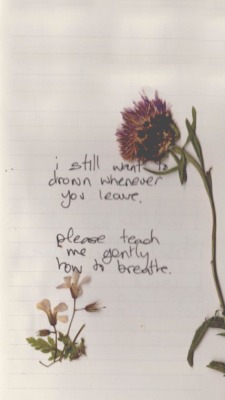 i still want to
drown whenever
you leave.
please teach
me gently
how to breathe.